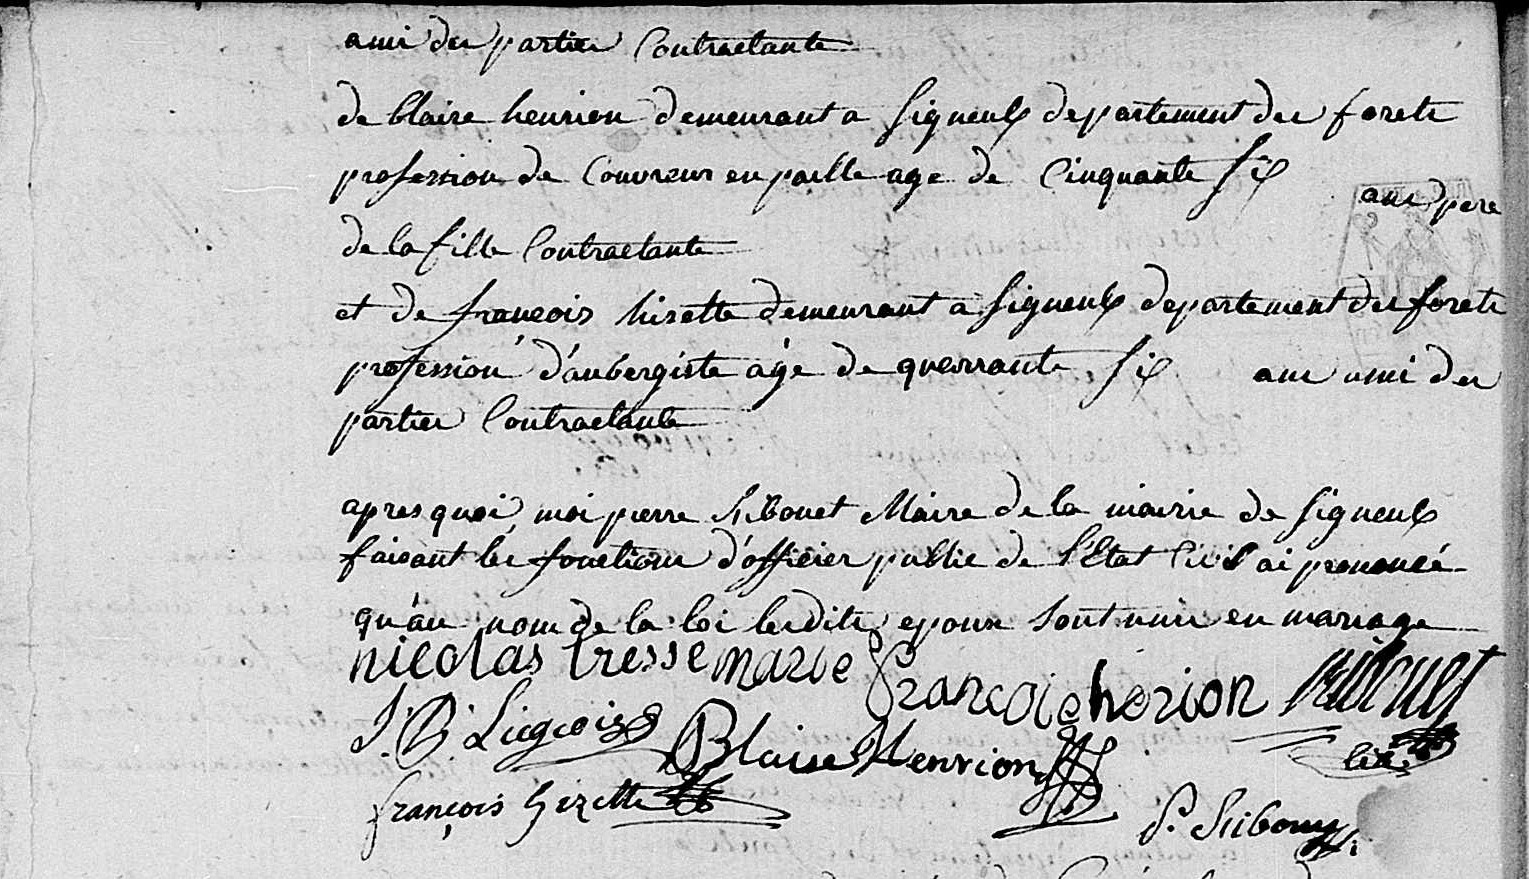 ami des parties Contractante
de blaise henrion demeurant a signeulx departement des forets
profession de Couvreur en paille age de Cinquante six ans pere
de la fille Contractante
et de françois hisette demeurant a signeulx departement des forets
profession d'aubergiste agé de querrante six ans ami des
parties Contractante
apres quoi, moi pierre Maire de la mairie de signeulx
faisant les fonctions d'officier public de l'Etat Civil ai prononcé
qu'au nom de la loi lesdits epoux sont unis en mariage
nicolas tresse marie françoise herion
J. B. Liegeois Blaise Henrion
françois hizette P.